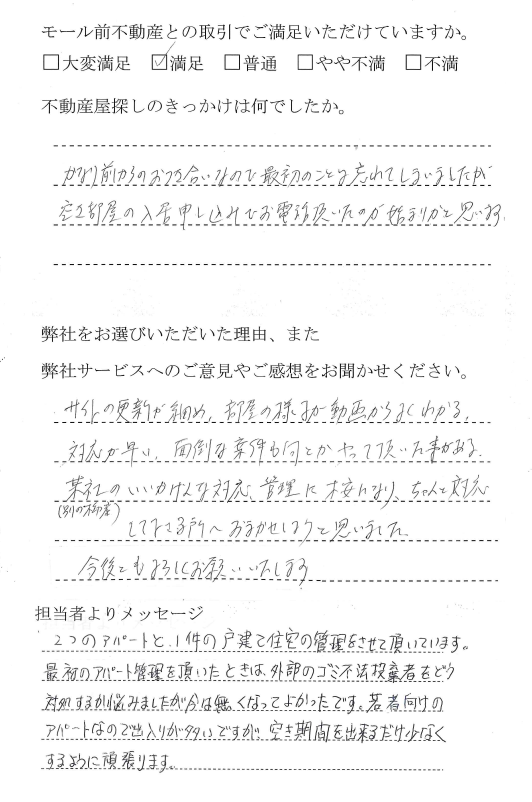 モール前不動産との取引でご満足いただけていますか。
□大変満足 ☑満足 □普通 □やや不満 □不満
不動産屋探しのきっかけは何でしたか。
かなり前からのおつき合いなので最初のことは忘れてしまいましたが
空き部屋の入居申し込みでお電話頂いたのが始まりかと思います。
弊社をお選びいただいた理由、また
弊社サービスへのご意見やご感想をお聞かせください。
サイトの更新が細め、部屋の様子が動画からよくわかる。
対応が早い、面倒な案件も何とかやって頂いた事がある。
某社のいいかげんな対応、管理に不安になり、ちゃんと対応
(別の不動産)
してくださる所へおまかせしようと思いました
今後ともよろしくお願いいたします
担当者よりメッセージ
2つのアパートと、1件の戸建て住宅の管理をさせて頂いています。
最初のアパート管理を頂いたときは、外部のゴミ不法投棄者をどう
対処するか悩みましたが今は無くなってよかったです。若者向けの
アパートなので出入りが多いですが、空き期間を出来るだけ少なく
するように頑張ります。